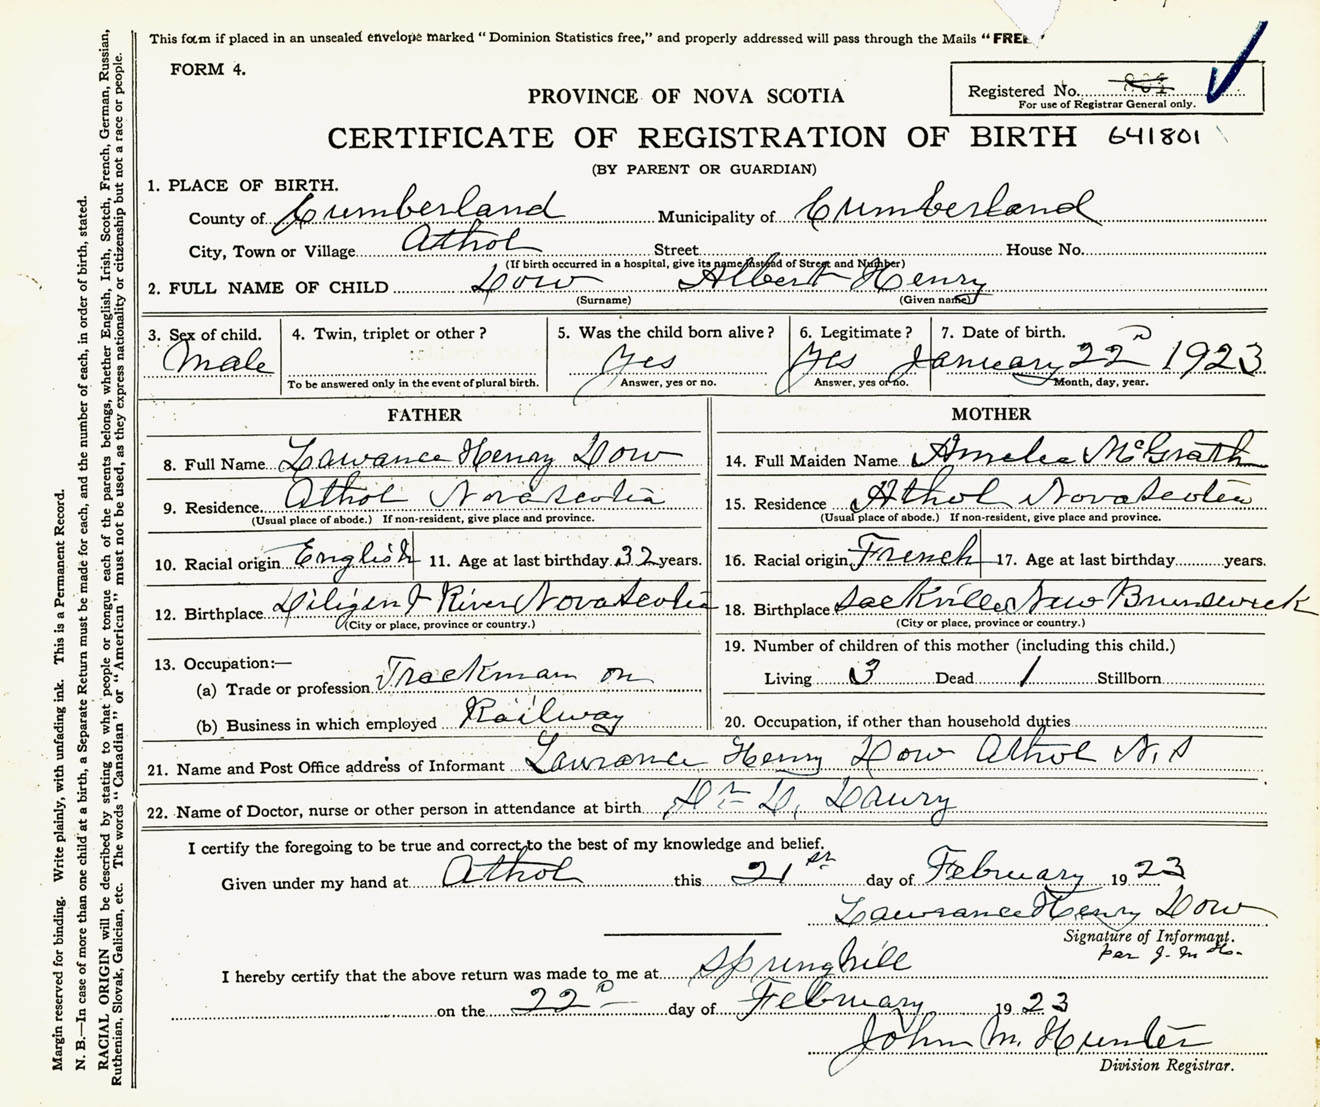 This form if placed in an unsealed envelope marked "Dominion Statistics free," and properly addressed will pass through the Mails "FREE"
FORM 4.
Registered No.
For use of Registrar General only.
PROVINCE OF NOVA SCOTIA
CERTIFICATE OF REGISTRATION OF BIRTH 641801
(BY PARENT OR GUARDIAN)
1. PLACE OF BIRTH.
County of Cumberland Municipality of Cumberland
City, Town or Village Athol Street House No.
(If birth occurred in a hospital, give its name instead of Street and Number)
2. FULL NAME OF CHILD Dow Albert Henry
(Surname) (Given name)
3. Sex of child. 4. Twin, triplet or other? 5. Was the child born alive? 6. Legitimate? 7. Date of birth.
Male Yes Yes January 22D 1923
To be answered only in the event of plural birth. Answer, yes or no. Answer, yes or no. Month, day, year.
FATHER
8. Full Name Lawrance Henry Dow
9. Residence Athol Nova Scotia
(Usual place of abode.) If non-resident, give place and province.
10. Racial origin English 11. Age at last birthday 32 years.
12. Birthplace Diligent River Nova Scotia
(City or place, province or country.)
13. Occupation:—
(a) Trade or profession Trackman on
(b) Business in which employed Railway
MOTHER
14. Full Maiden Name Amelia McGrath
15. Residence Athol Nova Scotia
(Usual place of abode.) If non-resident, give place and province.
16. Racial origin French 17. Age at last birthday years.
18. Birthplace Sackville New Brunswick
(City or place, province or country.)
19. Number of children of this mother (including this child.)
Living 3 Dead 1 Stillborn
20. Occupation, if other than household duties
21. Name and Post Office address of Informant Lawrance Henry Dow Athol N.S
22. Name of Doctor, nurse or other person in attendance at birth Dr D.
I certify the foregoing to be true and correct to the best of my knowledge and belief.
Given under my hand at Athol this 21st day of February 1923
Lawrance Henry Dow
Signature of Informant.
per J. M. H.
I hereby certify that the above return was made to me at Springhill
on the 22D day of February 1923
John M. Hunter
Division Registrar.
Margin reserved for binding. Write plainly, with unfading ink. This is a Permanent Record.
N. B.—In case of more than one child at a birth, a Separate Return must be made for each, and the number of each, in order of birth, stated.
RACIAL ORIGIN will be described by stating to what people or tongue each of the parents belongs, whether English, Irish, Scotch, French, German, Russian,
Ruthenian, Slovak, Galician, etc. The words "Canadian" or "American" must not be used, as they express nationality or citizenship but not a race or people.